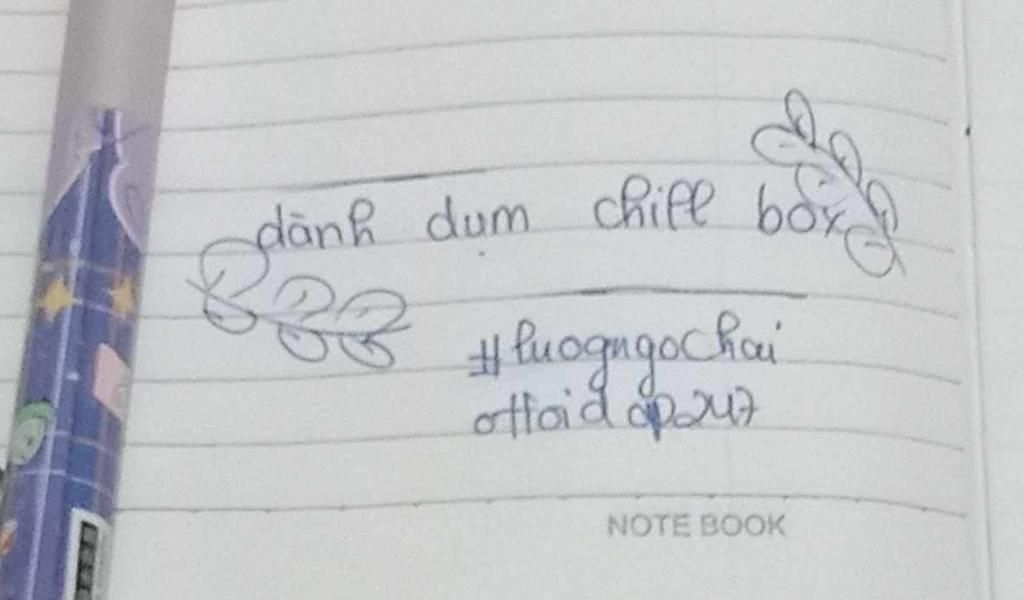 dành dụm chill box
#luogngochai
ottoidap247
NOTE BOOK